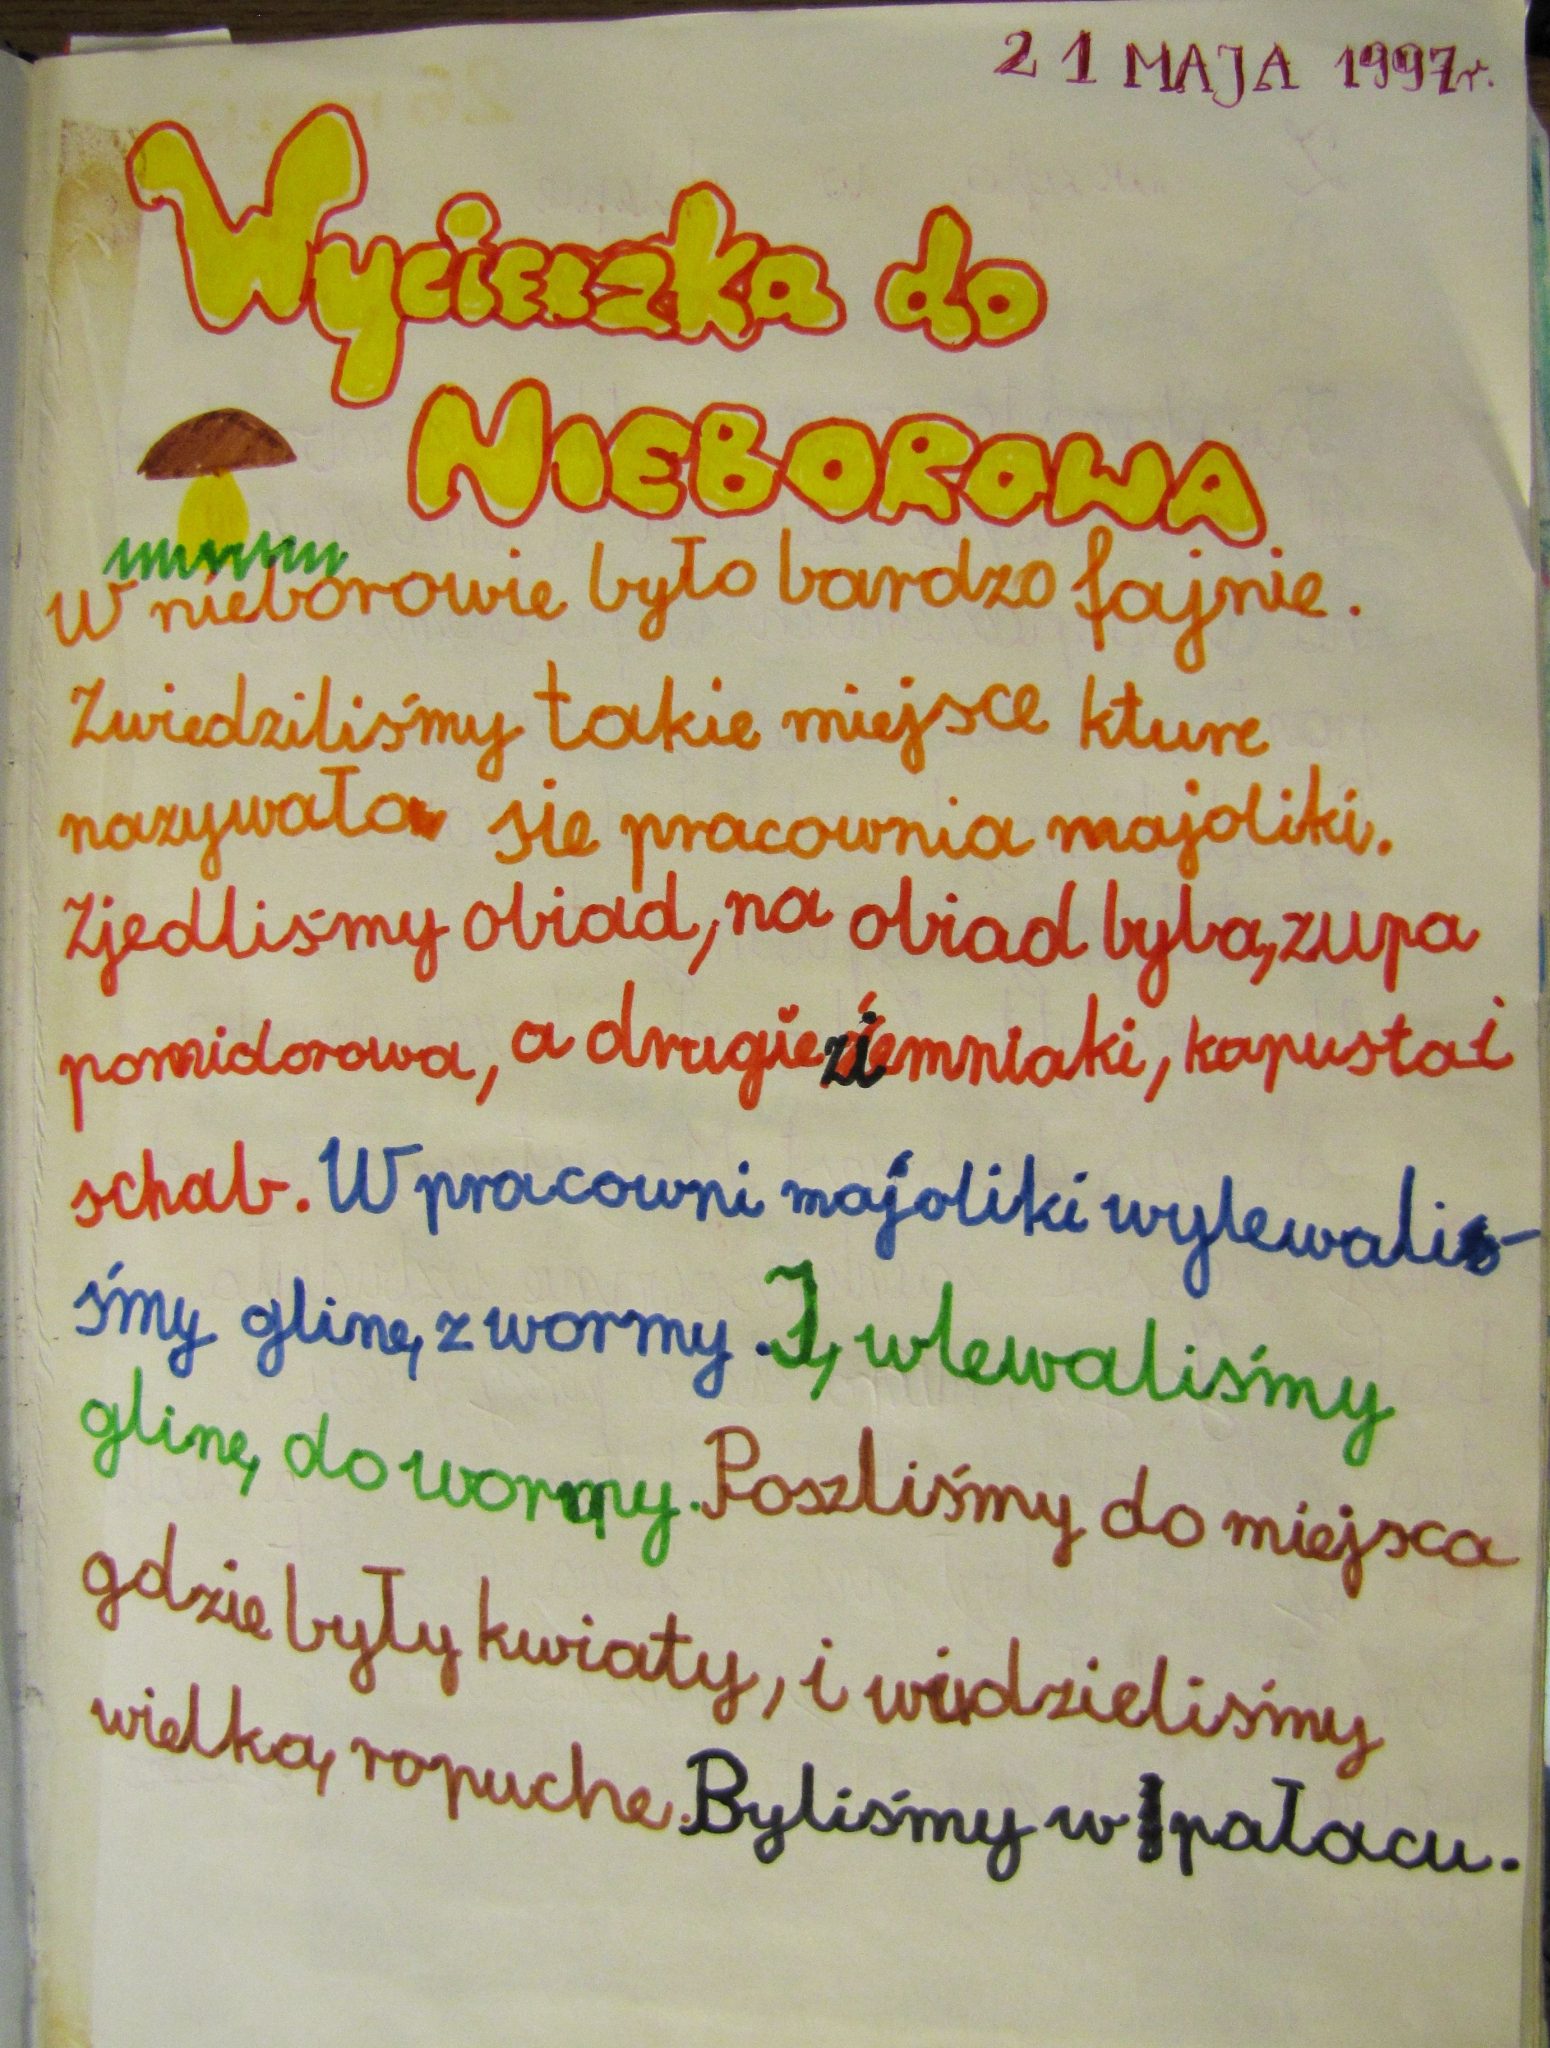 21 MAJA 1997r.
Wycieszka do
NIEBOROWA
W nieborowie było bardzo fajnie.
Zwiedziliśmy takie miejsce kture
nazywało się pracownia majoliki.
Zjedliśmy obiad, na obiad była, zupa
pomidorowa, a drugie ziemniaki, kapusta i
schab. W pracowni majoliki wylewali-
śmy glinę z wormy. I, wlewaliśmy
glinę do wormy. Poszliśmy do miejsca
gdzie były kwiaty, i widzieliśmy
wielką ropuchę. Byliśmy w pałacu.